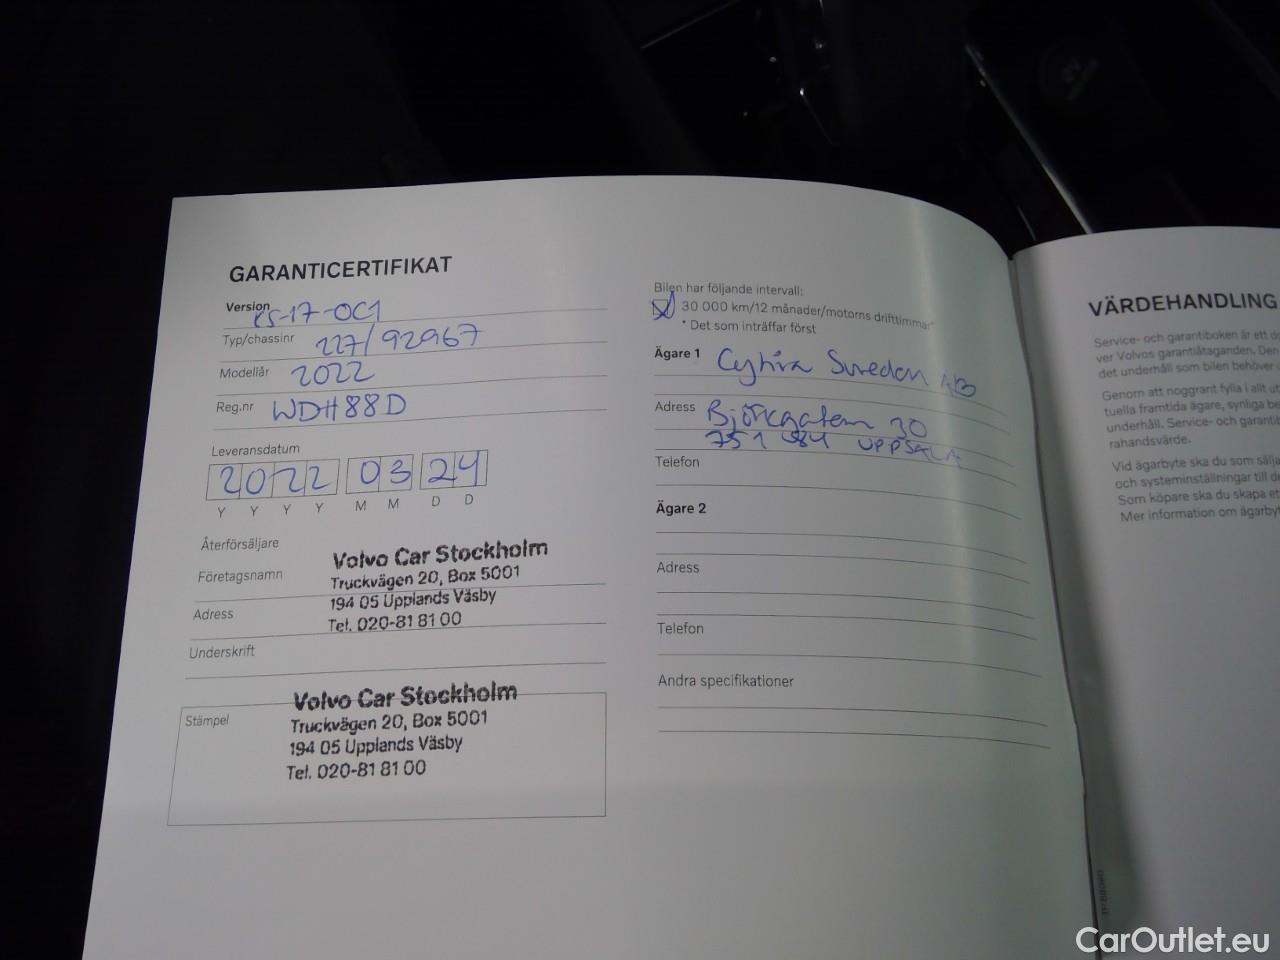 GARANTICERTIFIKAT
Version
Typ/chassinr 227/92967
Modellår 2022
Reg.nr WDH88D
Leveransdatum
2022 03 24
Y Y Y Y M M D D
Återförsäljare
Företagsnamn
Adress
Underskrift
Volvo Car Stockholm
Truckvägen 20, Box 5001
194 05 Upplands Väsby
Tel. 020-81 81 00
Stämpel
Volvo Car Stockholm
Truckvägen 20, Box 5001
194 05 Upplands Väsby
Tel. 020-81 81 00
Bilen har följande intervall:
30 000 km/12 månader/motorns drifttimmar*
* Det som inträffar först
Ägare 1 Sweden AB
Adress Björkgatan 30
751 UPPSALA
Telefon
Ägare 2
Adress
Telefon
Andra specifikationer
VÄRDEHANDLING
Service- och garantiboken är ett
ver Volvos garantiåtaganden. Den
det underhåll som bilen behöver
Genom att noggrant fylla i allt
tuella framtida ägare, synliga
underhåll. Service- och
rahandsvärde.
Vid ägarbyte ska du som
och systeminställningar till
Som köpare ska du skapa
Mer information om
CarOutlet.eu